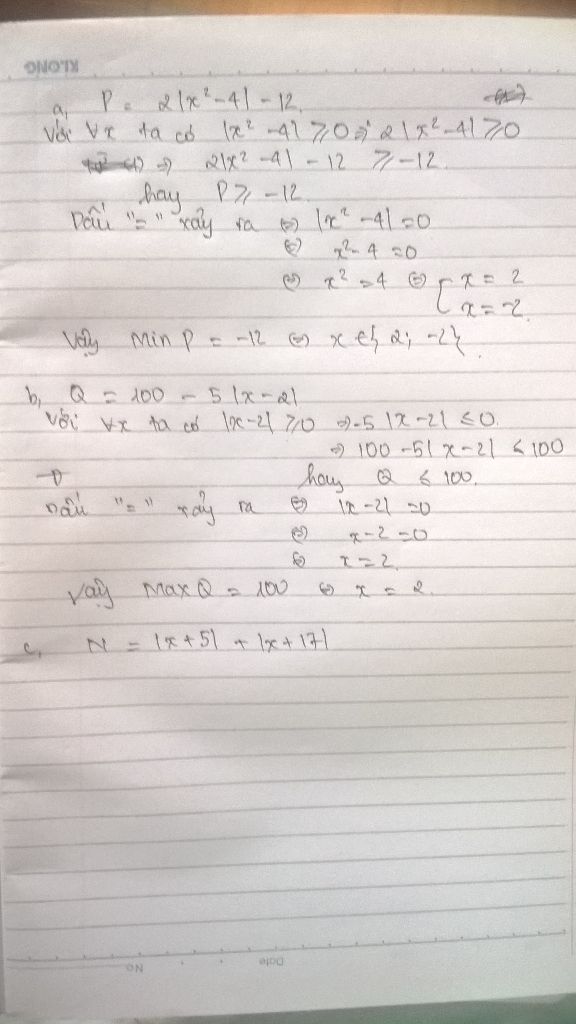 KLONG
a, P = 2|x² - 4| - 12
Với ∀x ta có |x² - 4| ⩾ 0 ⇒ 2|x² - 4| ⩾ 0
⇒ 2|x² - 4| - 12 ⩾ -12
hay P ⩾ -12
Dấu "=" xảy ra ⇔ |x² - 4| = 0
⇔ x² - 4 = 0
⇔ x² = 4 ⇔ [ x = 2
x = -2
Vậy Min P = -12 ⇔ x ∈ { 2; -2 }
b, Q = 100 - 5|x - 2|
Với ∀x ta có |x - 2| ⩾ 0 ⇒ -5|x - 2| ⩽ 0
⇒ 100 - 5|x - 2| ⩽ 100
hay Q ⩽ 100.
Dấu "=" xảy ra ⇔ |x - 2| = 0
⇔ x - 2 = 0
⇔ x = 2
Vậy Max Q = 100 ⇔ x = 2
c, N = |x + 5| + |x + 17|
No Date